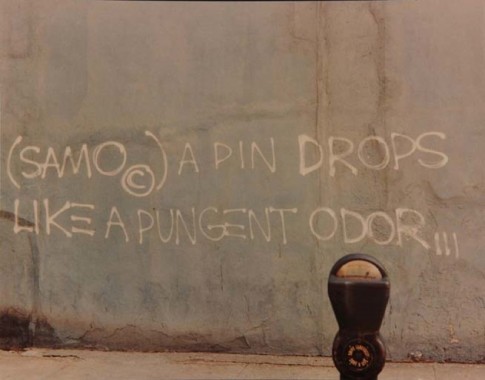 (SAMO©) A PIN DROPS
LIKE A PUNGENT ODOR,,,